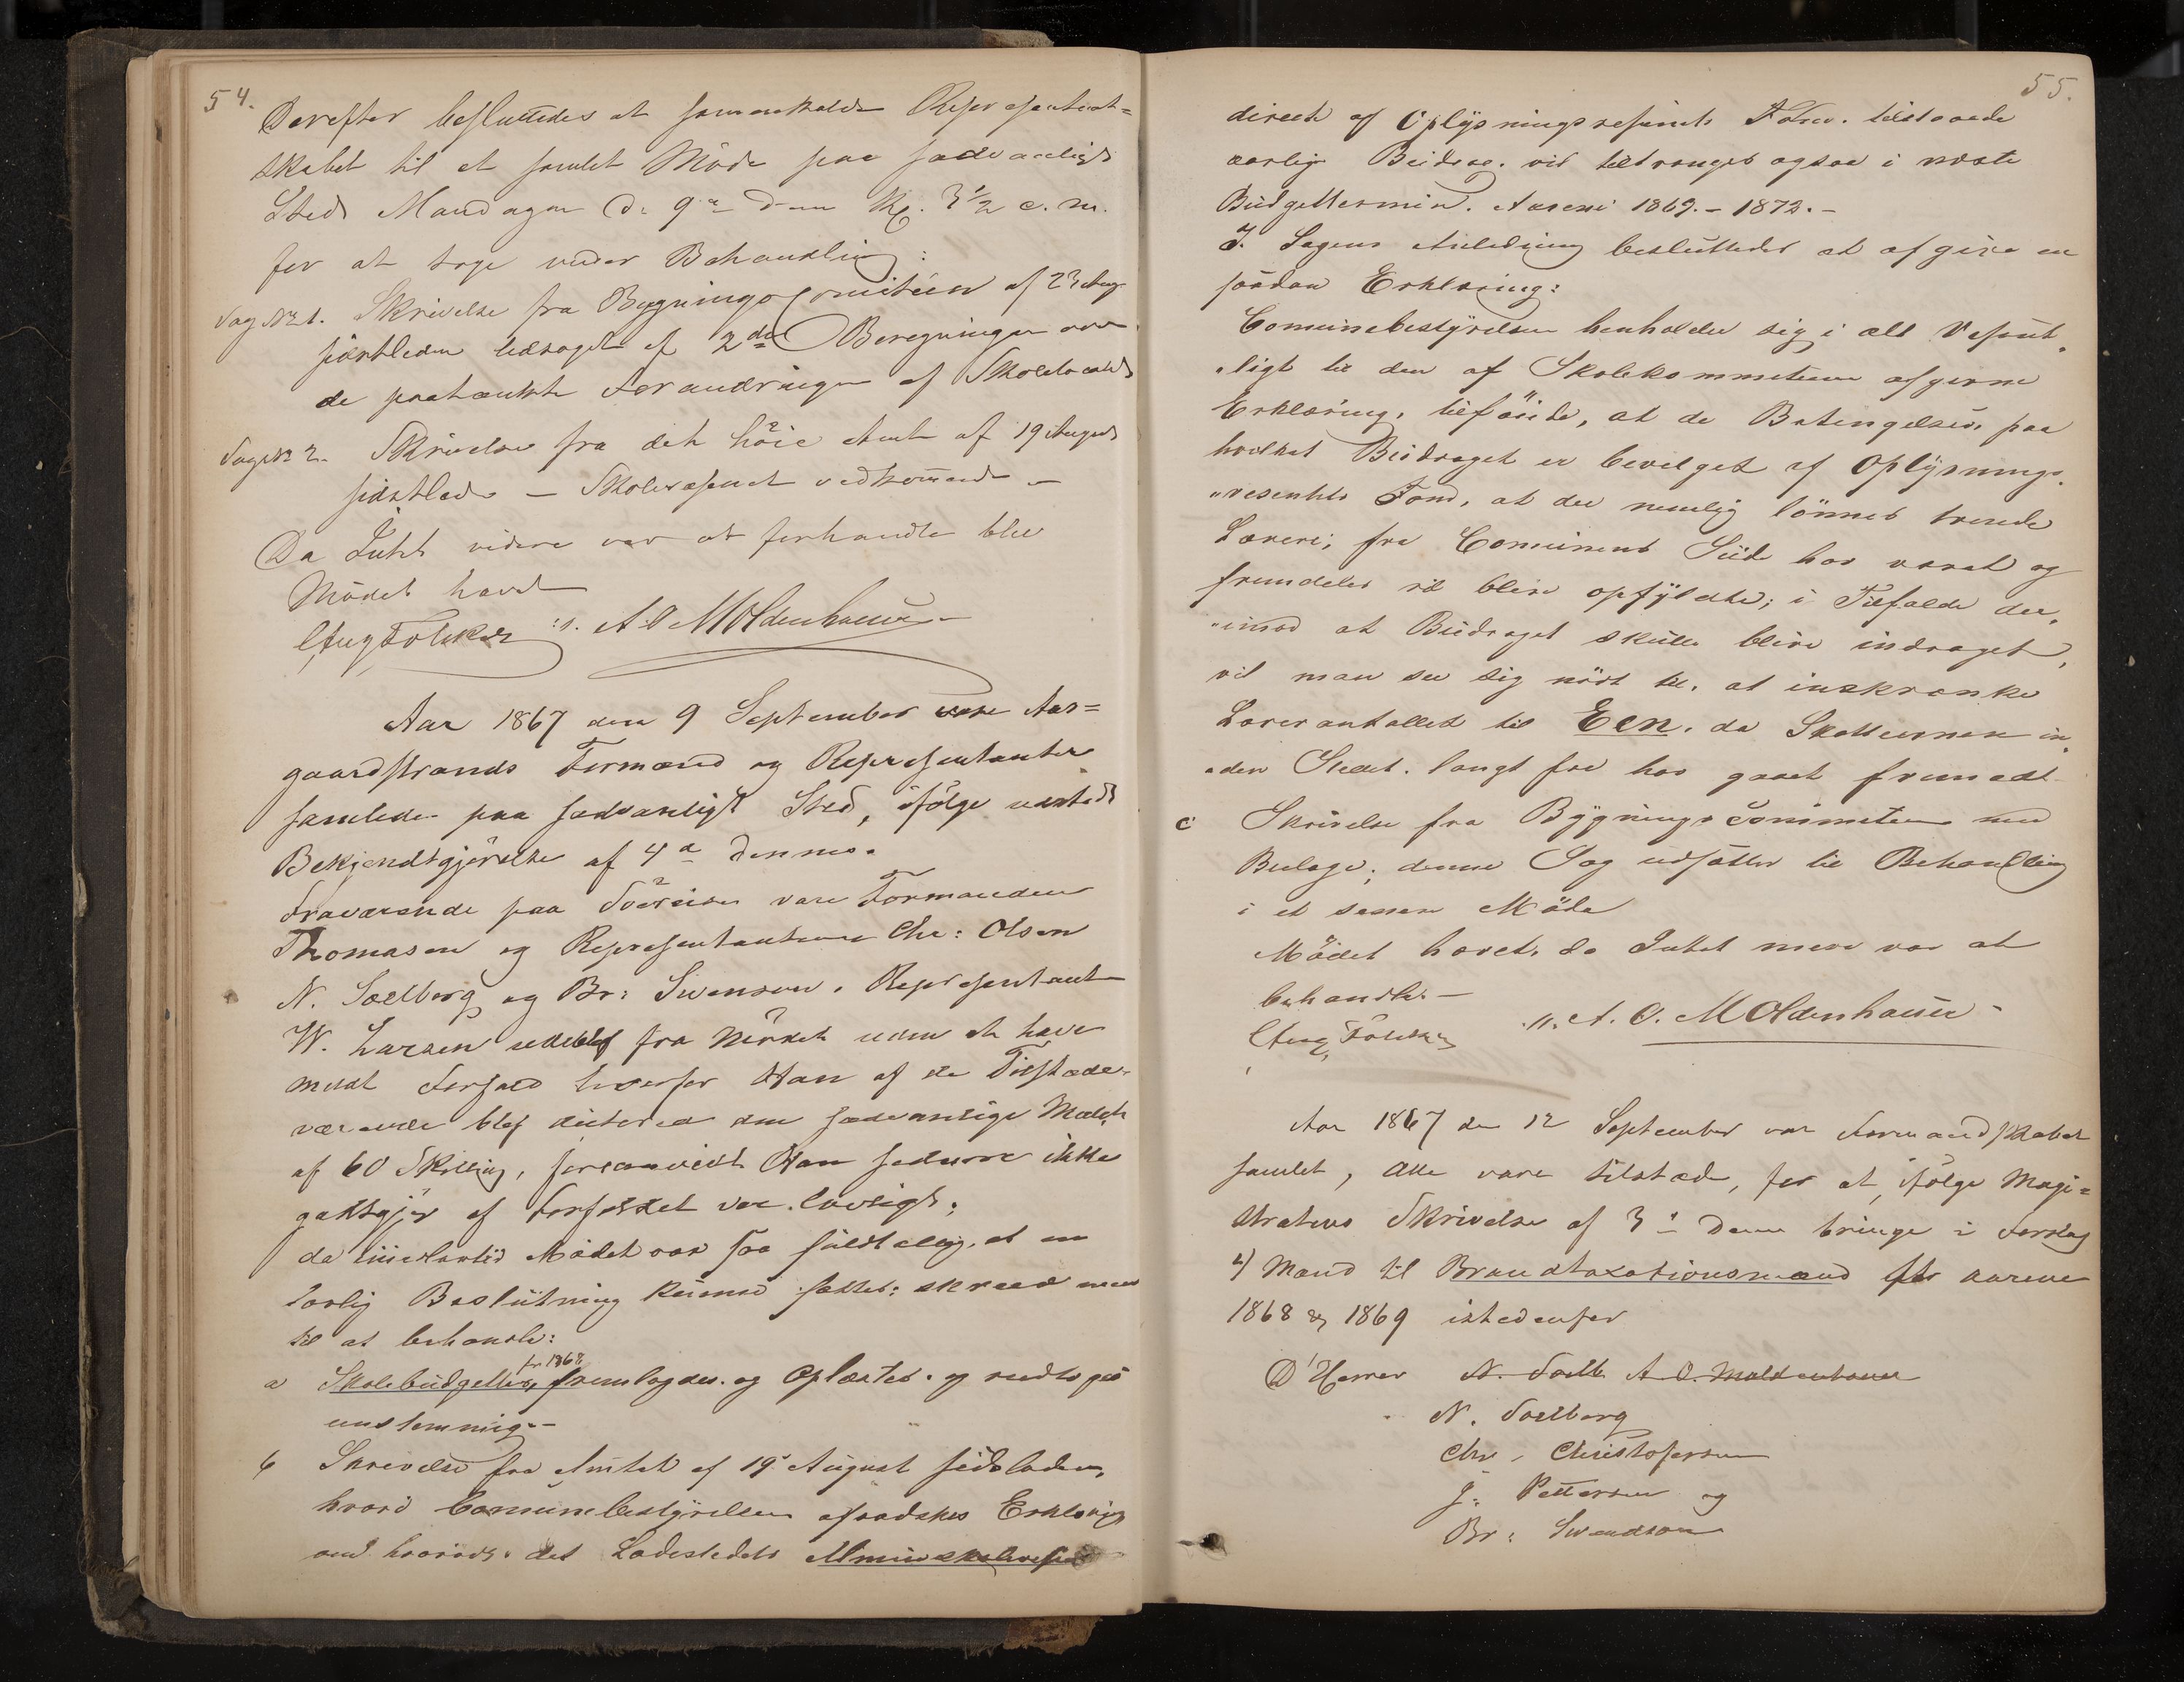 54.
Derefter besluttedes at sammenkalde Repræsentant=
skabet til et samlet Möde paa sædvanligt
Sted Mandagen d: 9de dennes Kl. 3½ e.m.
for at tage under Behandling:
Sag No 1. Skrivelse fra Bygningscomiteen af 23 Aug
sidstleden ledsaget af 2de Beregninger over
de paatænkte Forandringer af Skolelocalet
Sag No 2. Skrivelse fra det höie Amt af 19 August
sidstleden – Skolevæsenet vedkommende –
Da Intet videre var at forhandle blev
Mödet hævet
A O Moldenhauer
Aar 1867 den 9 September vare Aas=
gaardstrands Formænd og Repræsentanter
samlede paa sædvanligt Sted, ifölge udstedt
Bekjendtgjörelse af 4de dennes.
Fraværende paa Söreiser vare Formanden
Thomasen og Repræsentanterne Chr: Olsen
N. Soelberg og Br: Svensen. Repræsentant
W. Larsen udeblef fra Mödet uden at have
meldt Forfald hvorfor Han af de Tilstede-
værende blef dicteret den sædvanlige Mulct
af 60 Skilling, forsaavidt Han senere ikke
godtgjör at Forfaldet var lovligt;
da imidlertid Mödet var saa fuldtallig, at en
lovlig Beslutning kunde fattes; skreed man
til at behandle:
a Skolebudgettet for 1868 fremlagdes og Oplæstes og vedtoges
enstemmig.–
b Skrivelse fra Amtet af 19de August sidstleden,
hvori Communebestyrelsen afæskes Erklæring
om hvorvidt det Ladestedets Almueskolevæsen
55.
directe af Oplysningsvæsenets Fond tilstaaede
aarlige Bidrag vil tiltrænges ogsaa i næste
Budgettermin. Aarene 1869.–1872.–
I Sagens Anledning besluttedes at afgive en
saadan Erklæring:
Communebestyrelsen henholder sig i alt Væsent„
„ligt til den af Skolekommisionen afgivne
Erklæring, tilföiende, at de Betingelser, paa
hvilket Bidraget er bevilget af Oplysnings„
„væsenets Fond, at der nemlig lönnes tvende
Lærere; fra Communens Side har været og
fremdeles vil blive opfyldte; i Tilfælde der„
„imod at Bidraget skulle blive inddraget,
vil man see sig nödt til, at indskrænke
Lærerantallet til Een, da Skatteevnen in„
„den Stedet langt fra har gaaet fremad
c Skrivelse fra Bygningscommiteen med
Beilage; denne Sag udsattes til Behandling
i et senere Möde
Mödet hævet, da Intet mere var at
behandle.–
A. O. Moldenhauer
Aar 1867 den 12 September var Formandskabet
samlet, Alle vare tilstæde, for at ifölge Magi=
stratens Skrivelse af 3de dennes bringe i Forslag
4 Mænd til Brandtaxationsmænd for aarene
1868 & 1869 istedenfor
D'Herrer N. Soelb A O. Moldenhauer
N. Soelberg
Chr. Christofersen
J. Pettersen og
Br: Svendsen